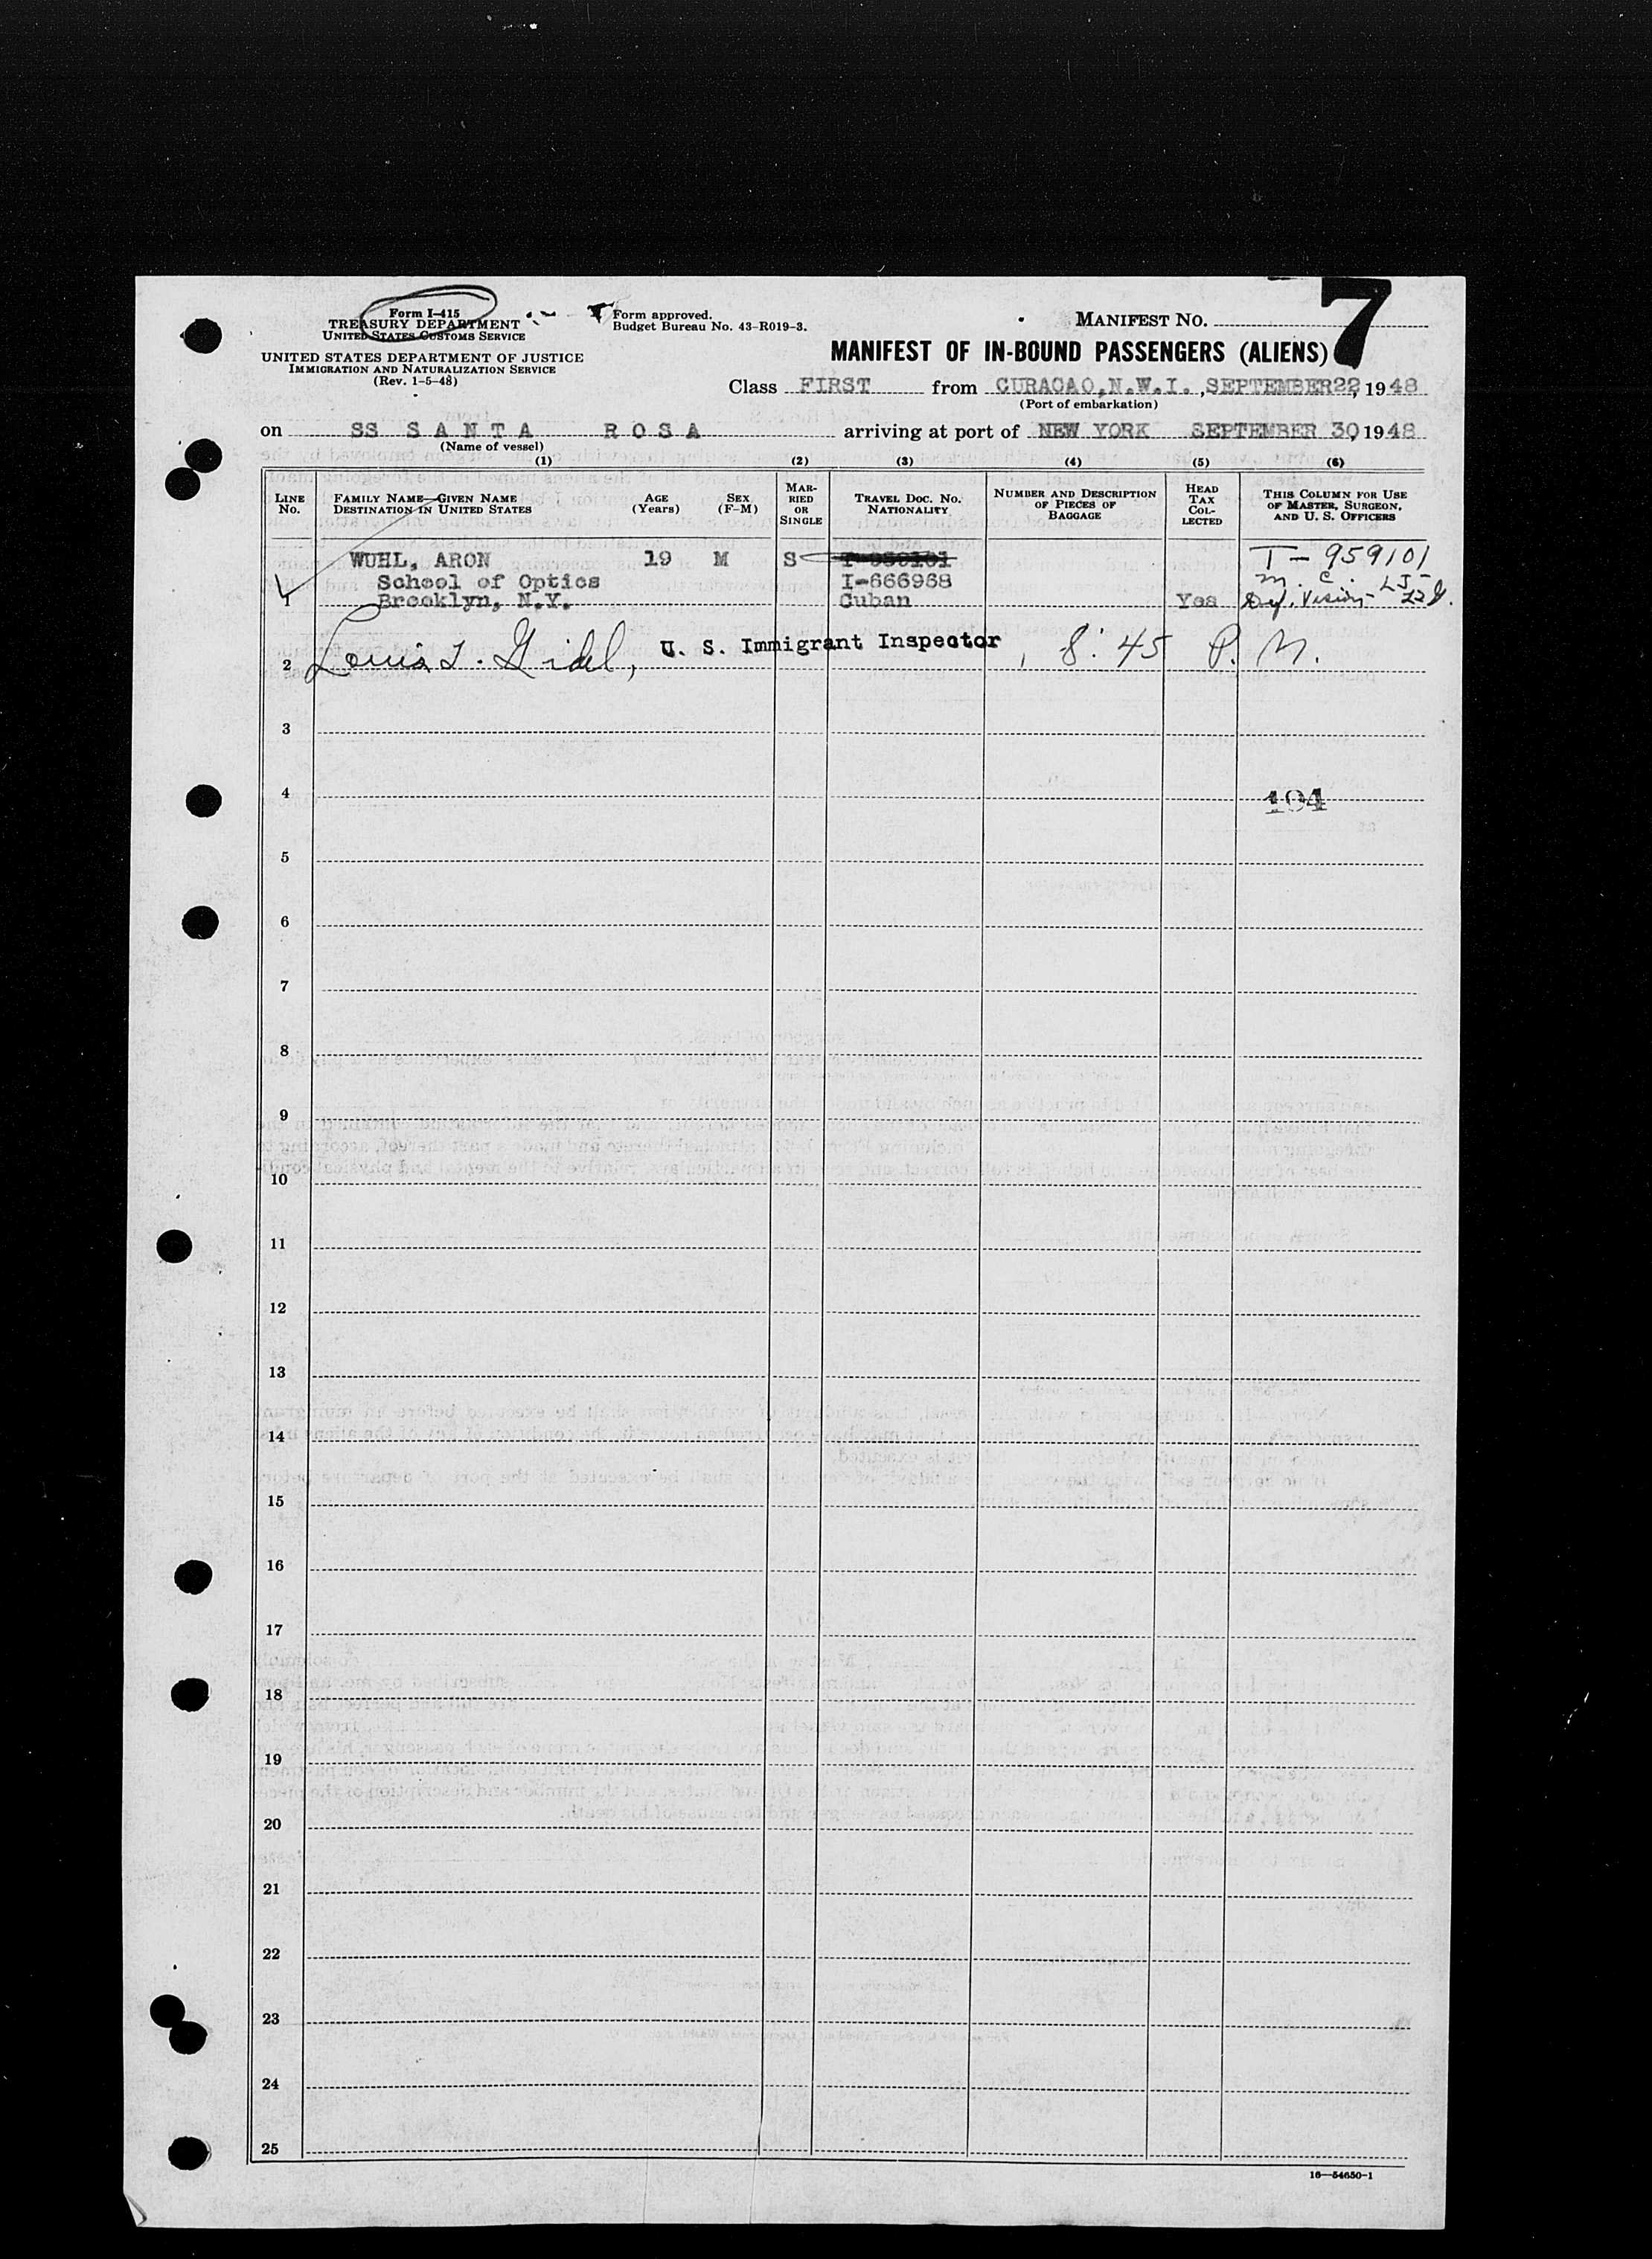 7
Form I-415
TREASURY DEPARTMENT
UNITED STATES CUSTOMS SERVICE
UNITED STATES DEPARTMENT OF JUSTICE
IMMIGRATION AND NATURALIZATION SERVICE
(Rev. 1-5-48)
Form approved.
Budget Bureau No. 43-R019-3.
MANIFEST NO.
MANIFEST OF IN-BOUND PASSENGERS (ALIENS)
Class FIRST from CURACAO,N.W.I., SEPTEMBER22, 1948
(Port of embarkation)
on SS SANTA ROSA arriving at port of NEW YORK SEPTEMBER 30, 1948
(Name of vessel)
(1) (2) (3) (4) (5) (6)
LINE No. FAMILY NAME—GIVEN NAME DESTINATION IN UNITED STATES AGE (Years) SEX (F-M) MARRIED OR SINGLE TRAVEL DOC. NO. NATIONALITY NUMBER AND DESCRIPTION OF PIECES OF BAGGAGE HEAD TAX COLLECTED THIS COLUMN FOR USE OF MASTER, SURGEON, AND U. S. OFFICERS
WUHL, ARON 19 M S T-959101 T-959101
School of Optics I-666968 M. C.
1 Brooklyn, N.Y. Cuban Yes Def. Vision
2 Louis U. S. Immigrant Inspector, 8:45 P. M.
3
4 194
5
6
7
8
9
10
11
12
13
14
15
16
17
18
19
20
21
22
23
24
25
16—54650-1